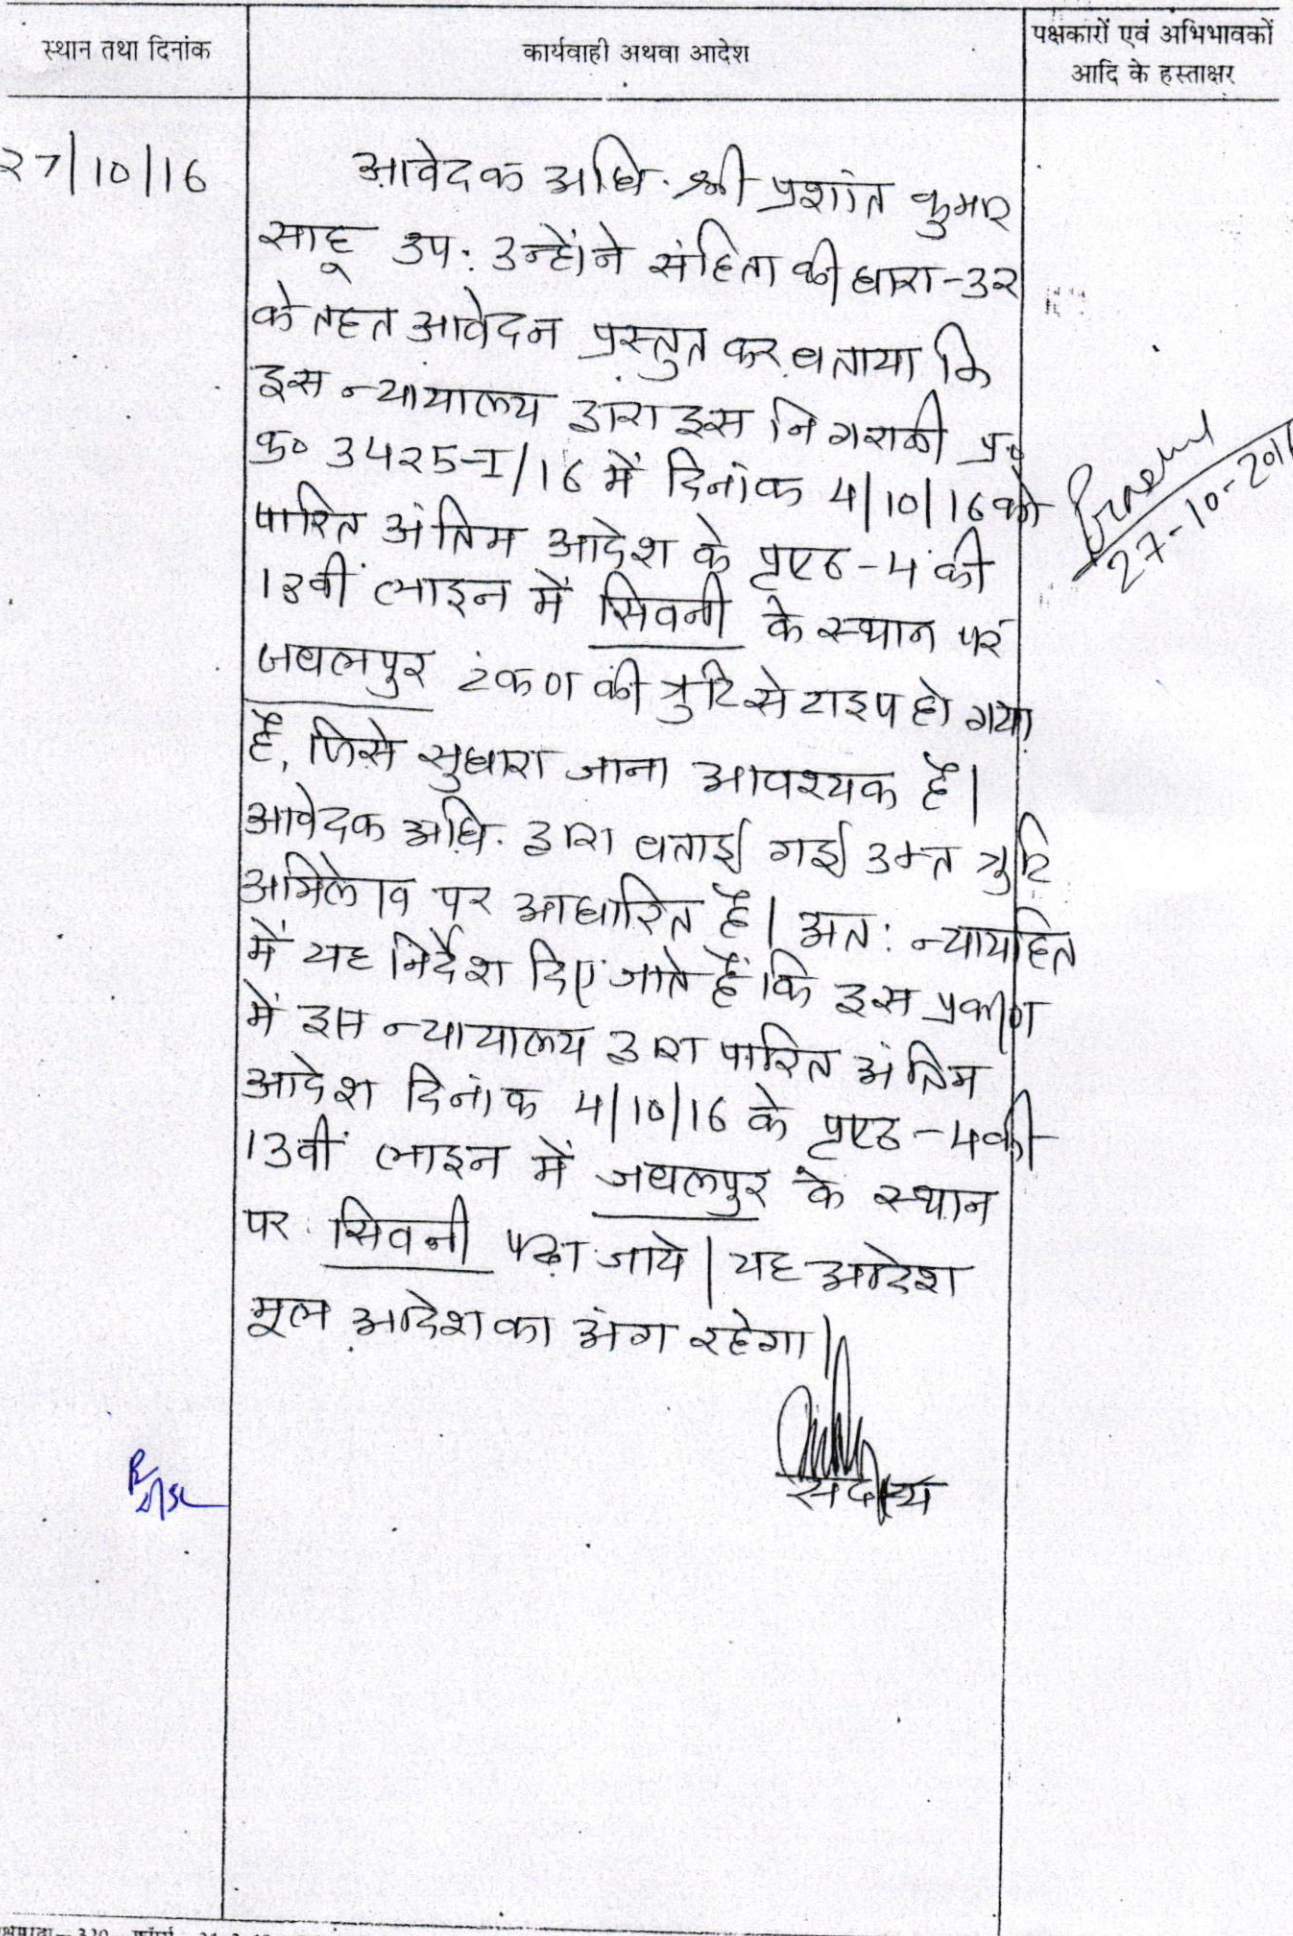 स्थान तथा दिनांक
कार्यवाही अथवा आदेश
पक्षकारों एवं अभिभावकों
आदि के हस्ताक्षर
27/10/16
आवेदक अधि. श्री प्रशांत कुमार
साहू उप. उन्होंने संहिता की धारा-32
के तहत आवेदन प्रस्तुत कर बताया कि
इस न्यायालय द्वारा इस निगरानी प्र०
क्र० 3425-I/16 में दिनांक 4/10/16 को
पारित अंतिम आदेश के पृष्ठ-4 की
13वीं लाइन में सिवनी के स्थान पर
जबलपुर टंकण की त्रुटि से टाइप हो गया
है, जिसे सुधारा जाना आवश्यक है।
आवेदक अधि. द्वारा बताई गई उक्त त्रुटि
अभिलेख पर आधारित है। अतः न्यायहित
में यह निर्देश दिए जाते हैं कि इस प्रकरण
में इस न्यायालय द्वारा पारित अंतिम
आदेश दिनांक 4/10/16 के पृष्ठ-4 की
13वीं लाइन में जबलपुर के स्थान
पर सिवनी पढ़ा जाये। यह आदेश
मूल आदेश का अंग रहेगा।
सदस्य
27-10-2016